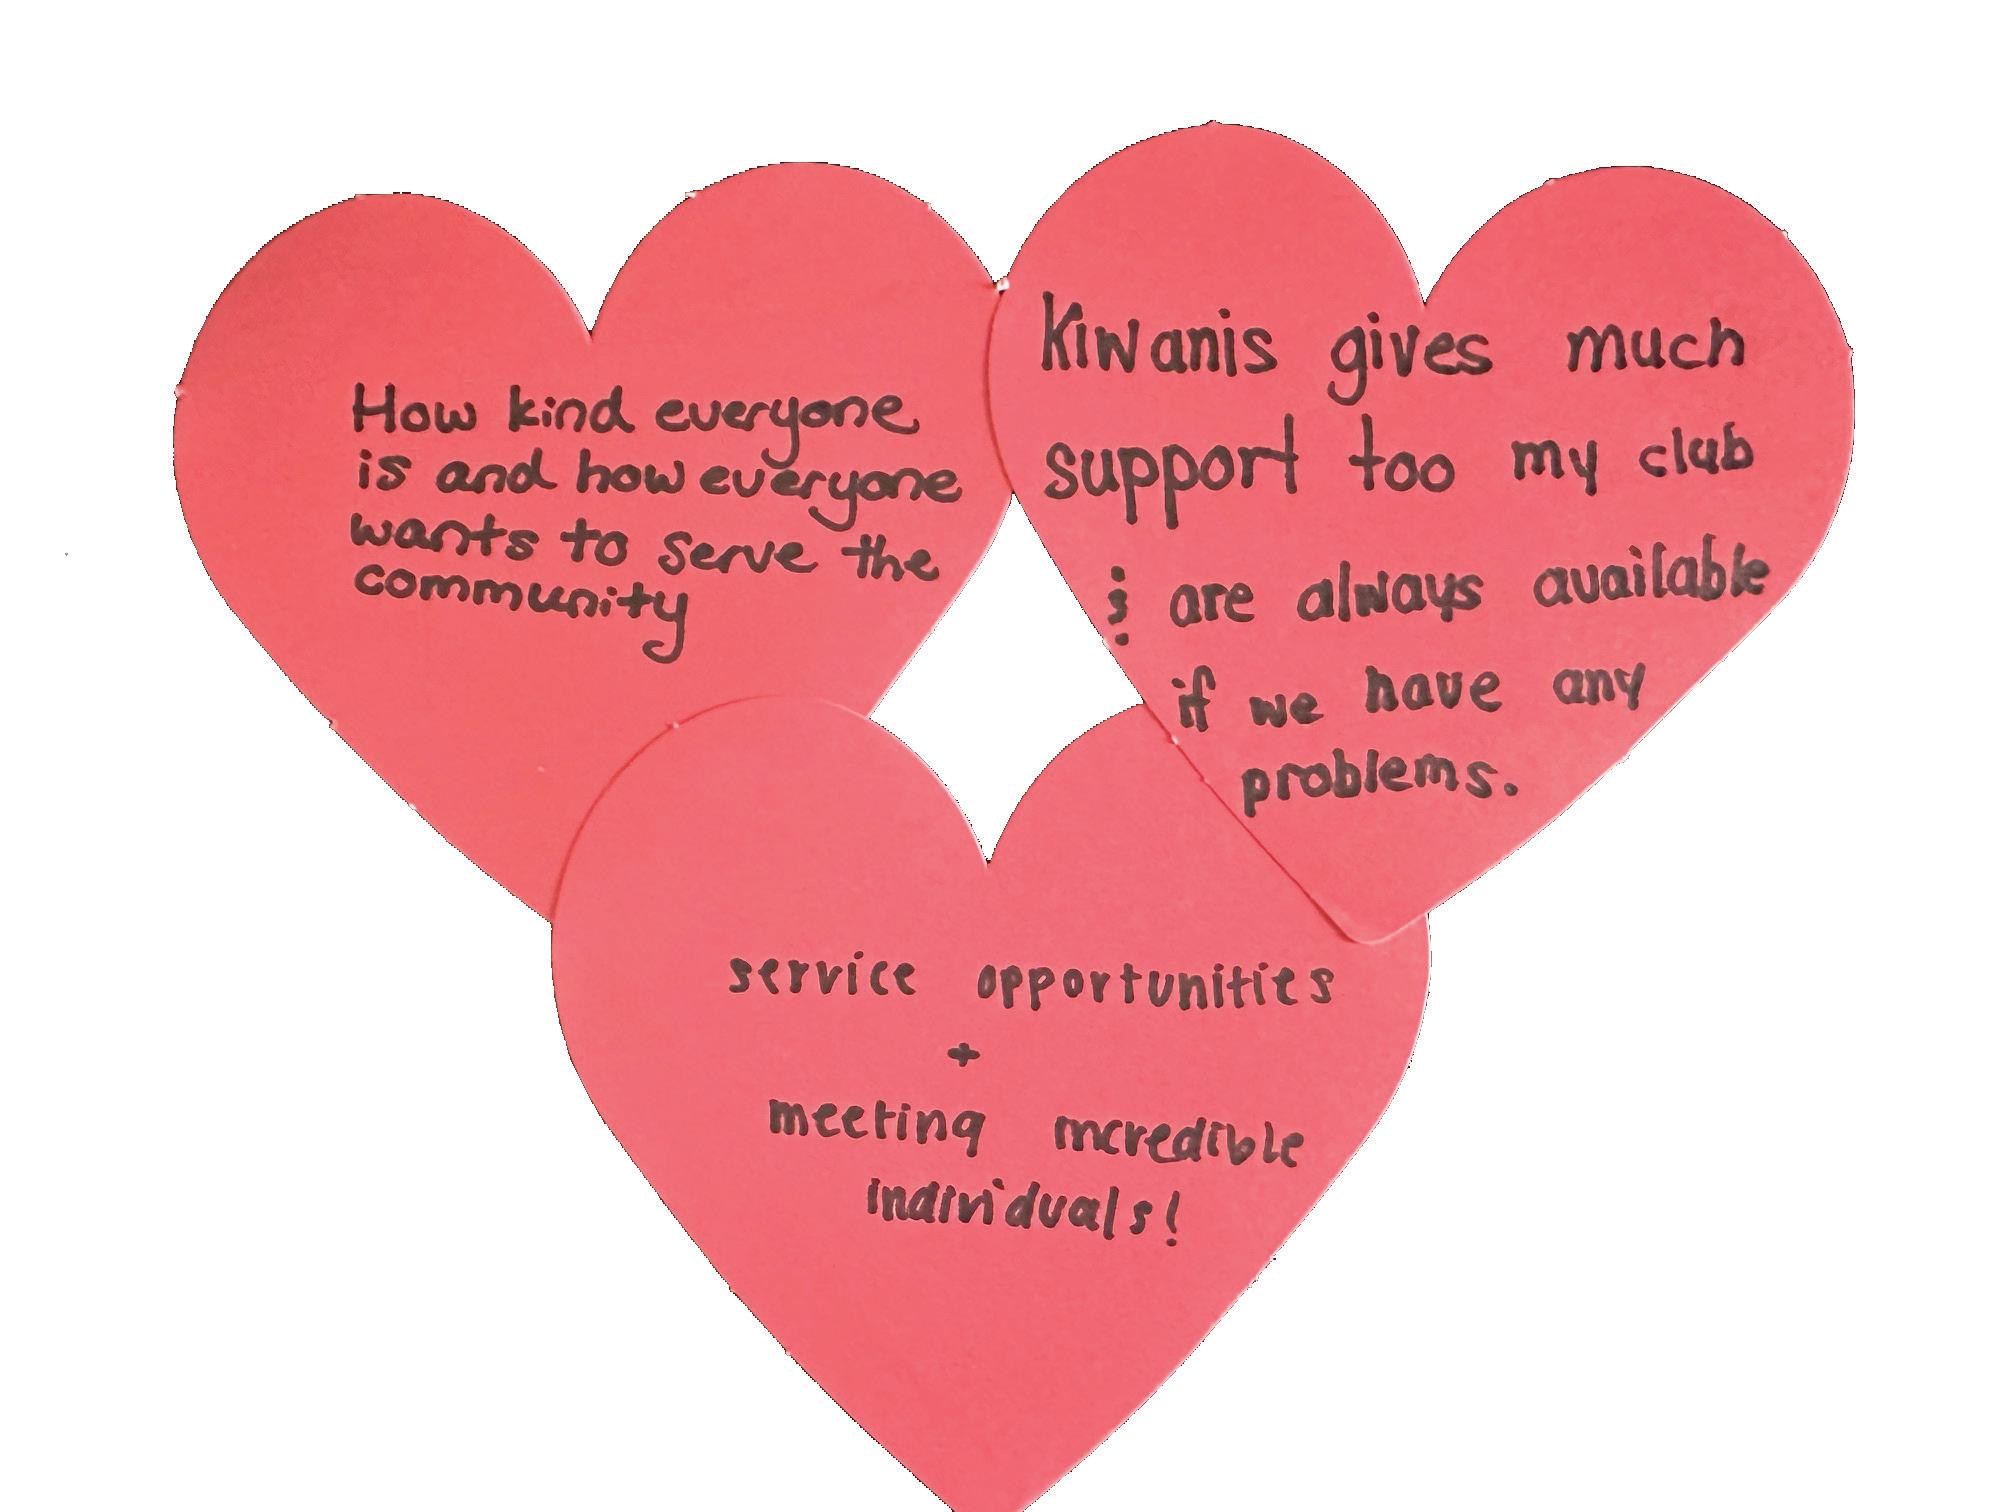 How kind everyone
is and how everyone
wants to serve the
community
Kiwanis gives much
support too my club
& are always available
if we have any
problems.
service opportunities
+
meeting incredible
individuals!